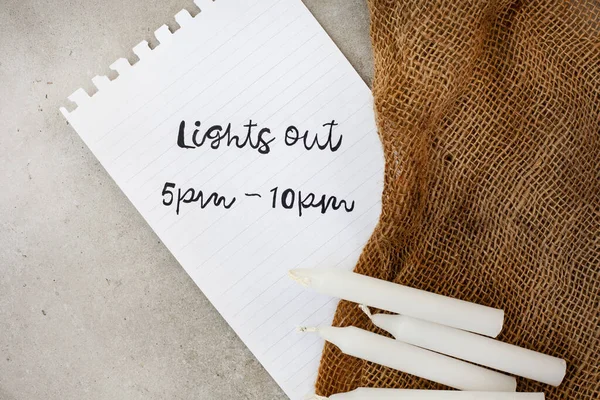 Lights Out
5pm - 10pm